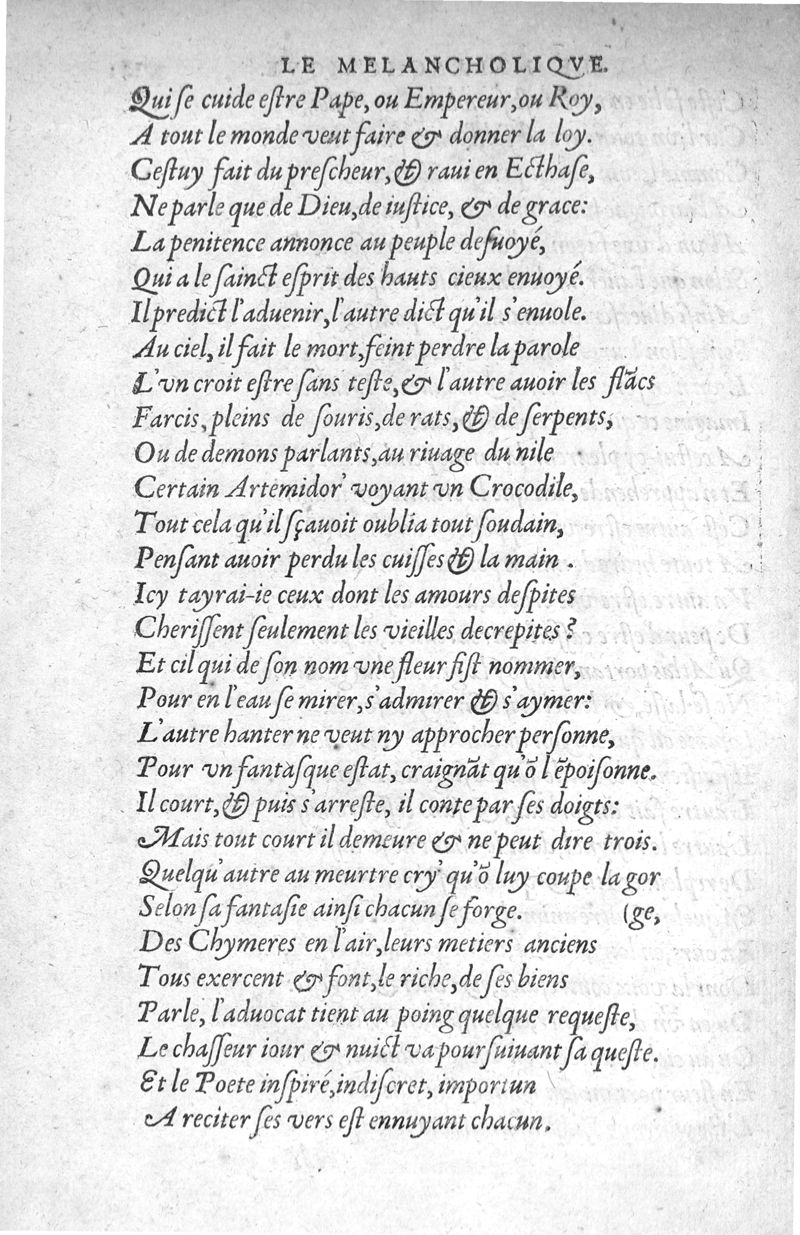 LE MELANCHOLIQVE.
Qui se cuide estre Pape, ou Empereur, ou Roy,
A tout le monde veut faire & donner la loy.
Cestuy fait du prescheur, & raui en Ecthase,
Ne parle que de Dieu, de iustice, & de grace:
La penitence annonce au peuple desuoyé,
Qui a le sainct esprit des hauts cieux enuoyé.
Il predict l'aduenir, l'autre dict qu'il s'enuole.
Au ciel, il fait le mort, feint perdre la parole
L'vn croit estre sans teste, & l'autre auoir les flãcs
Farcis, pleins de souris, de rats, & de serpents,
Ou de demons parlants, au riuage du nile
Certain Artemidor' voyant vn Crocodile,
Tout cela qu'il sçauoit oublia tout soudain,
Pensant auoir perdu les cuisses & la main .
Icy tayrai-ie ceux dont les amours despites
Cherissent seulement les vieilles decrepites?
Et cil qui de son nom vne fleur fist nommer,
Pour en l'eau se mirer, s'admirer & s'aymer:
L'autre hanter ne veut ny approcher personne,
Pour vn fantasque estat, craignãt qu'õ l'ẽpoisonne.
Il court, & puis s'arreste, il conte par ses doigts:
Mais tout court il demeure & ne peut dire trois.
Quelqu'autre au meurtre cry' qu'õ luy coupe la gor
Selon sa fantasie ainsi chacun se forge. (ge,
Des Chymeres en l'air, leurs metiers anciens
Tous exercent & font, le riche, de ses biens
Parle, l'aduocat tient au poing quelque requeste,
Le chasseur iour & nuict va poursuiuant sa queste.
Et le Poete inspiré, indiscret, importun
A reciter ses vers est ennuyant chacun.